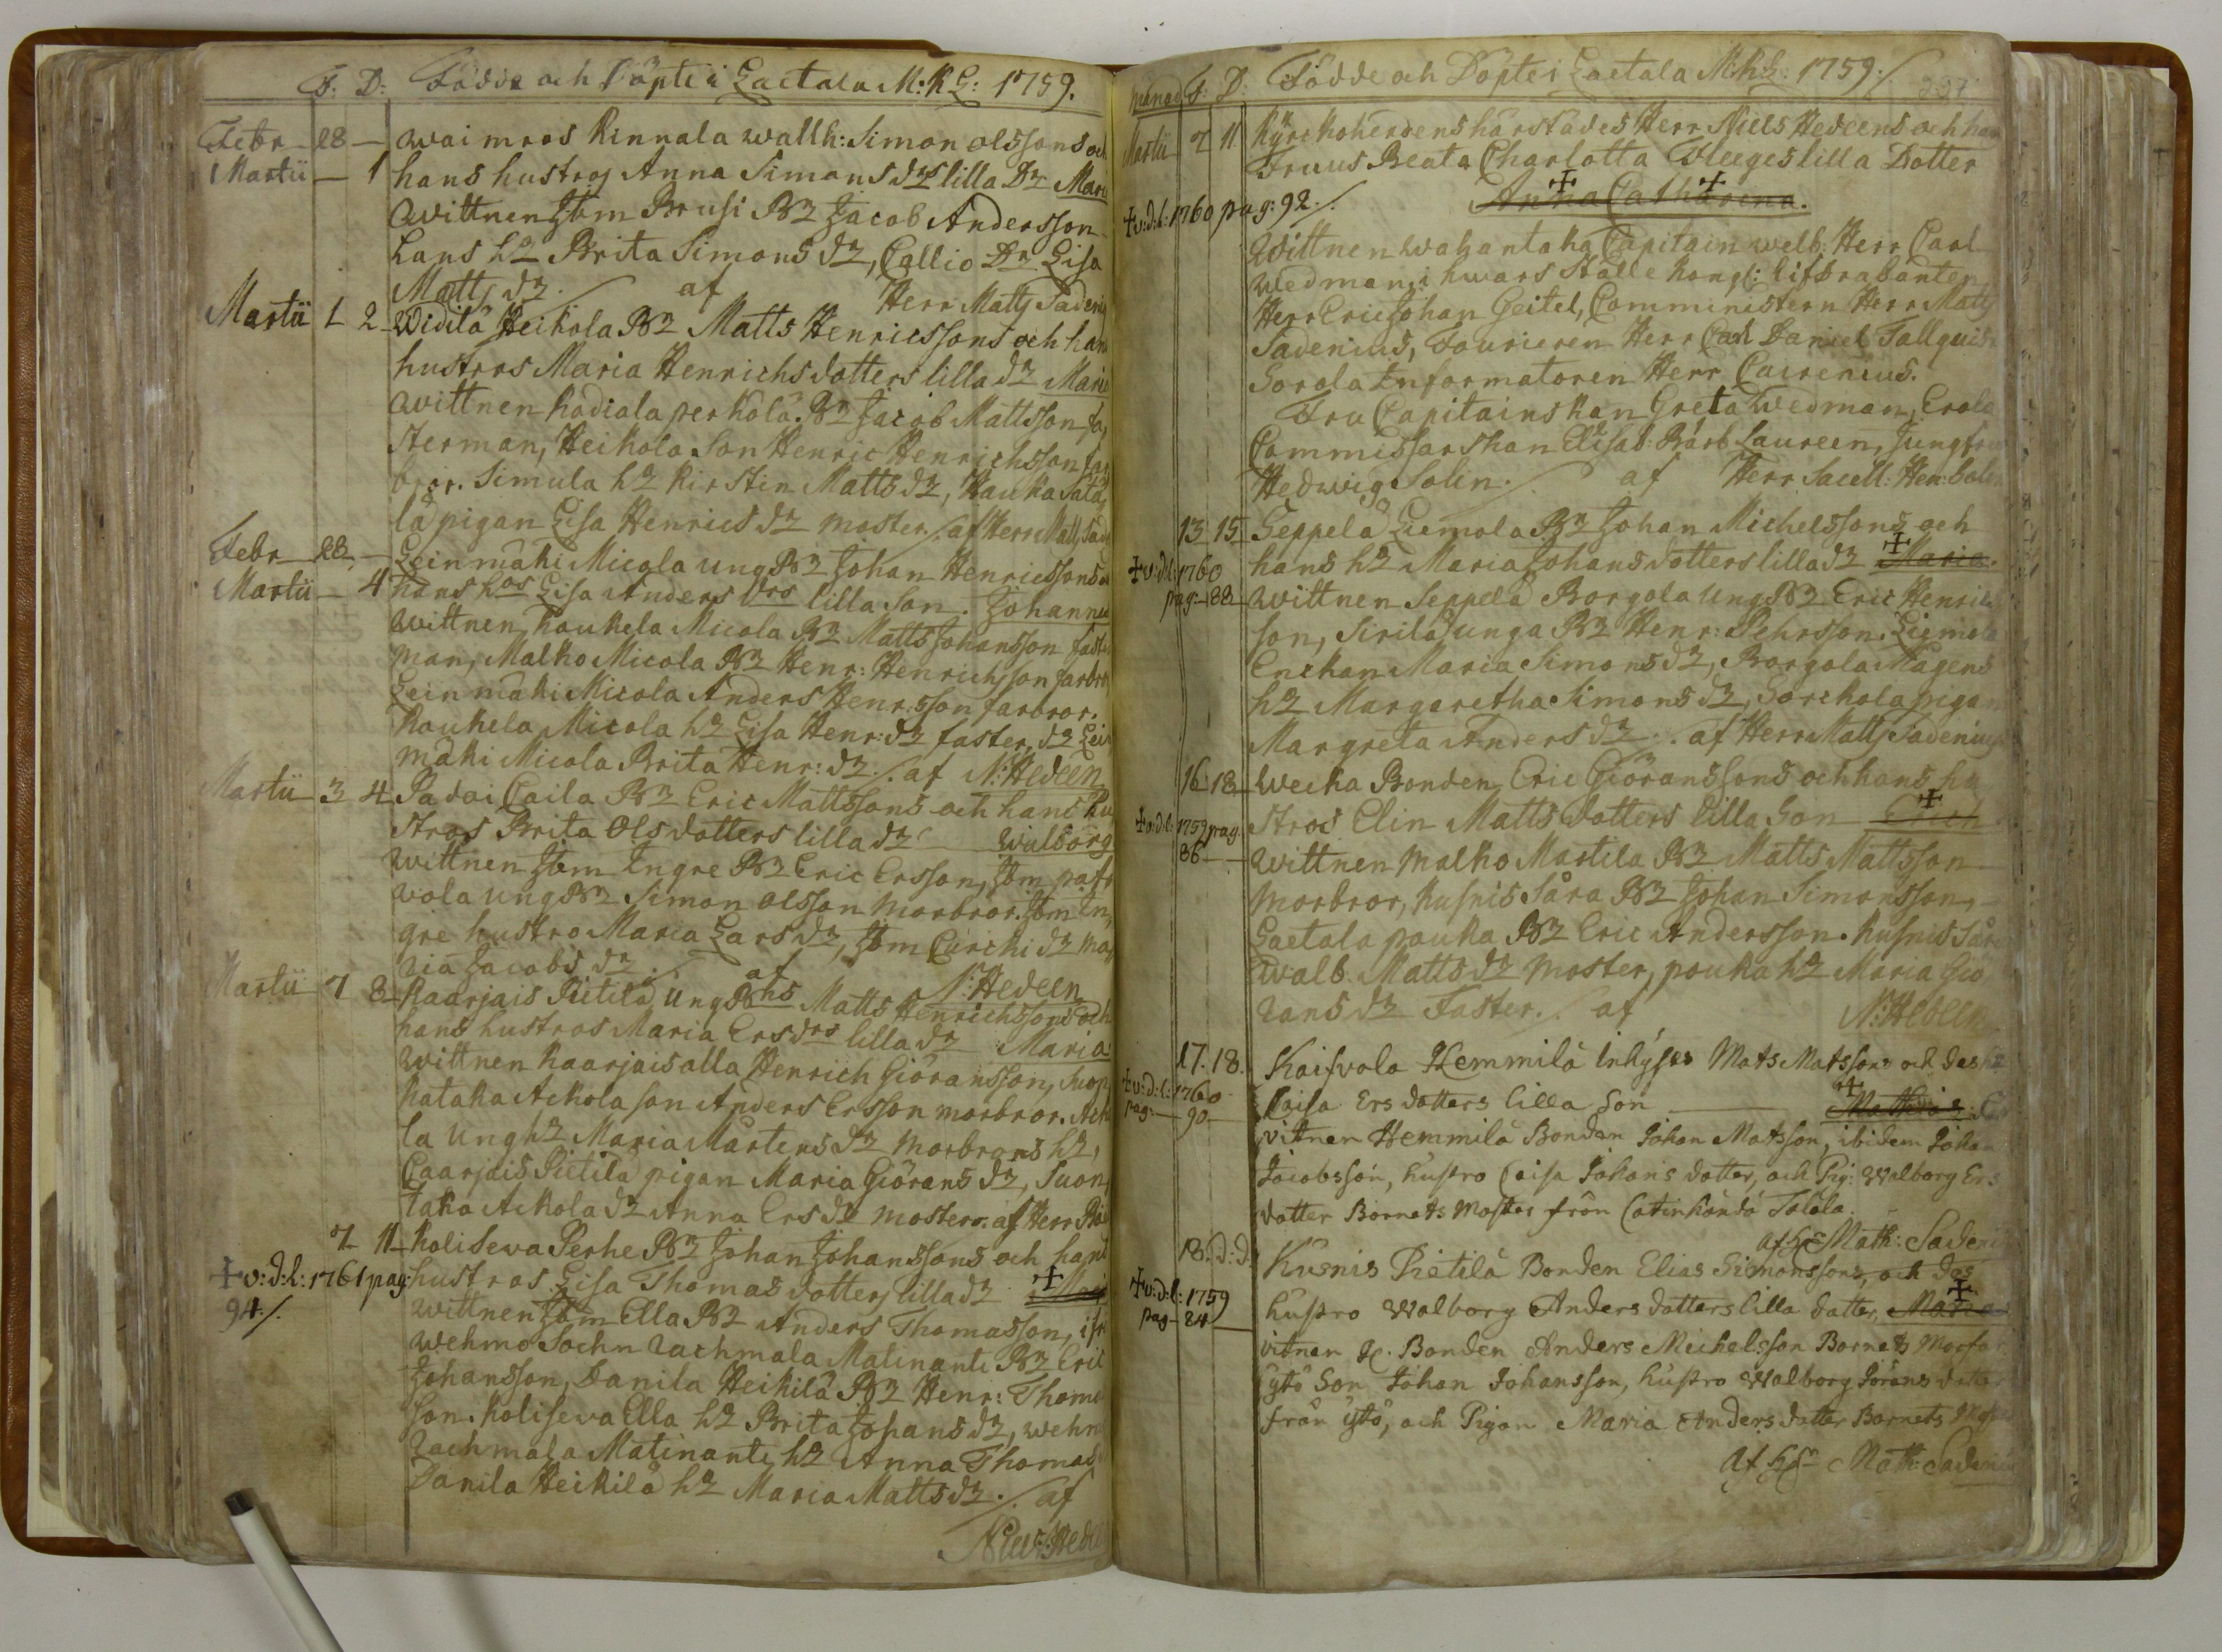 F: D: Födde och Döpte i Laetala M:K L: 1759.
Febr 28 — waimros Rinnala wallh: Simon olssons och
Martii — 1 hans hustros Anna Simons dr lilla Dr Mari
wittnen Jbm Brusi Br Jacob Andersson
Hans h Brita Simons dr, Callio Dr Lisa
Matts dr. / af Herr Matts Sadeni
Martii 1 2 widilä Heikola Br Matts Henricssons och hans
hustros Maria Henrichsdotters lilla dr Mari
wittnen hadiala perkölä Br Jacob Mattsson fa
sterman, Heikola Son Henric Henrichsson far
bror. Simula h Kirstin Matts dr, Hauka
lä pigan Lisa Henrics dr moster /. af Herr Matts Sad
Febr 28 — Leinmäki Micola ung Br Johan Henricssons
Martii — 4 hans hos Lisa Anders drs lilla Son. Johannes
wittnen, Haukela Micola Br Matts Johansson faster
man, Malko Micola Br Henr: Henrichsson farbror
Leinmäki Micola Anders Henr:sson farbror.
Haukela Micola h Lisa Henr: dr faster, dr Lein
mäki Micola Brita Henr: dr ./. af N: Hedeen
Martii 3 4 Padoi Caila Br Eric Mattssons och hans hu
stros Brita Olsdotters lilla dr Walborg
wittnen Jbm Ingre Br Eric Ersson, Jbm paf
wola ung Br Simon olsson morbror. Jbm In
gre hustro Maria Lars dr, Jbm Circki dr Ma
ria Jacobs dr ./. af N: Hedeen
Martii 7 8 Kaarjais Pietilä ung Bns Matts Henrichssons och
hans hustros Maria Ersdrs lilla dr Maria
wittnen Kaarjais alla Henrich Giöransson, Suon
kataka Ackola son Anders Ersson morbror. Acko
la Ung h Maria Mårtens dr morbrors h,
Caarjais Pietilä pigan Maria Giörans dr, Suon
taka Ackola dr Anna Ers dr moster. af Herr
7 11 Kolisewa Perhe Br Johan Johanssons och hans
+v:d:l: 1761 pag: hustros Lisa Thomasdotters lilla dr
94./. wittnen Jbm Ella Br Anders Thomasson, ifr
wehmo Sochn rachmala Malinanti Br Eric
Johansson, Danila Heikilä Br Henr: Thoma
son. Kolisewa Ella h Brita Johans dr, wehm
rachmala Matinanti h Anna Thomas
Danila Heikilä h Maria Matts dr ./. af
Niels Hedeen
Månad F: D: Födde och Döpte i Laetala M:K L: 1759./. 237
Martii 7 11 Kyrckoherdens härstädes Herr Niels Hedeens och hans
Fruus Beata Charlotta Fleeges lilla Dotter
+v:d:l: 1760 pag: 92./. Anna Catharina.
Wittnen wahantaka Capitain welb. Herr Carl
Wedman, i hwars Ställe Kongl: lifdrabanten
Herr Eric Johan Geitel, Comministern Herr Matts
Sadenius, Fourieren Herr Carl Daniel Fallquist
Sorola Informatoren Herr Cairenius.
Fru Capitainskan Greta Wedman, Erola
Commissarskan Elisab: Barb Laureen, Jungfru
Hedwig Solin. / af Herr Sacell: Hen: Sole
13 15 Seppelä Liemola Br Johan Michelssons och
+v:d:l: 1760 hans h Maria Johansdotters lilla dr Maria.
pag: 88 wittnen Seppelä Borgola ung Br Eric Henrics
son, Sirilä unga Br Henr: Pehrsson. Liemola
Enckan Maria Simons dr, Borgola Mågens
h Margaretha Simons dr, Sorckola pigan
Margreta Anders dr ./. af Herr Matts Sadenius
16 18 Wecka Bonden Eric Giöranssons och hans hu
+v:d:l: 1759 pag. stros Elin Mattsdotters lilla Son Erich
86 wittnen Malko Mårtila Br Matts Mattsson
morbror, Kusnis Såra Br Johan Simonsson,
Laetala pouka Br Eric Andersson. Kusnis Såra
walb. Matts dr Moster, pouka h Maria Giö
rans dr Faster ./. af N: Hedeen
17. 18. Kaifvola Hemmilä Inhyses Mats Matssons och des h
+v:d:l: 1760 Caisa Ers dotters lilla Son Mathias
pag: 90 vitnen Hemmilä Bonden Johan Matsson, ibidem Johan
Jacobsson, hustro Caisa Johans dotter, och Pig: Walborg Ers
dotter Barnets Moster från Catinhändä Talola.
af Hr Math: Sadeni
18. d:d. Kusnis Pietilä Bonden Elias Simonssons, och des
+v:d:l: 1759 hustro Walborg Anders dotters lilla dotter, Maria
pag 84 vitnen H. Bonden Anders Michelsson Barnets Morfar
ytö Son Johan Johansson, hustro Walborg Jörans dotter
från ytö, och Pigan Maria Anders dotter Barnets Moster
Af Hr Math: Sadenius